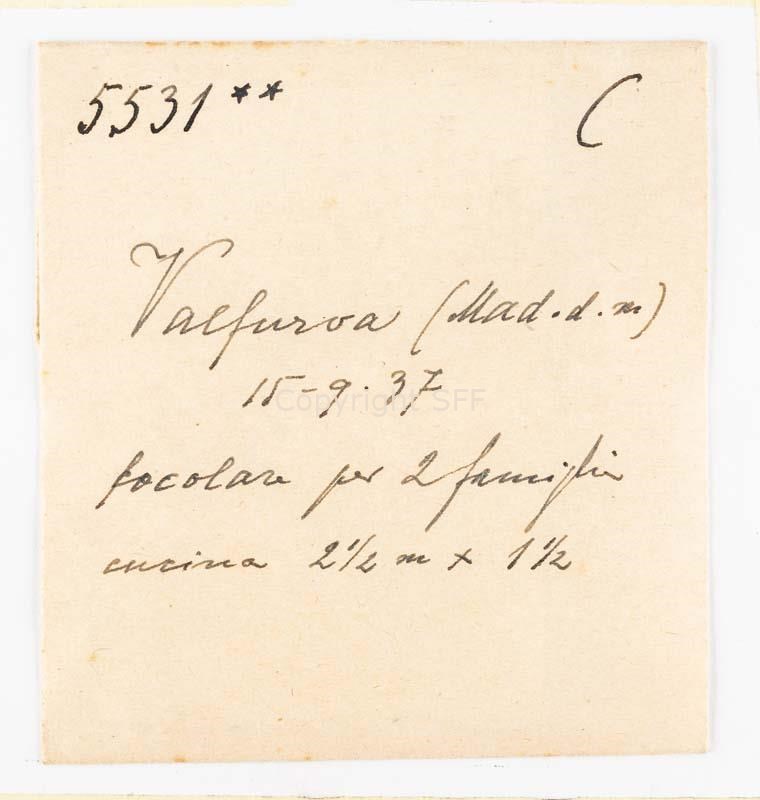 5531 ** C
Valfurva (Mad. d. m)
15-9.37
Copyright SFF
focolare per 2 famiglie
cucina 2 1/2 m x 1 1/2